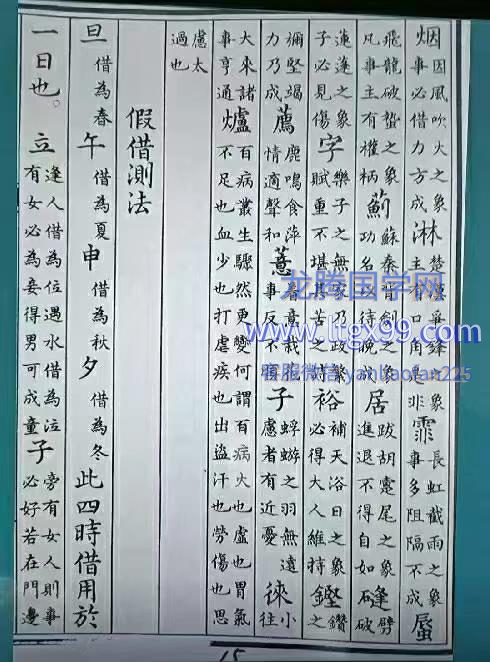 烟 因風吹火之象 事必借力方成 淋 楚漢爭鋒之象 主有口角是非 霏 長虹截雨之象 事多阻隔不成 蜃
飛龍破蟄之象 凡事主有權柄 薊 蘇秦背劍之象 功名待晚 居 跋胡疐尾之象 進退不得自如 縫 劈破
蓮蓬之象 子必見傷 字 樂子之無家乃政繁 賦重不堪其苦之時 裕 補天浴日之象 必得大人維持 鏗 鑽之
彌堅竭 力乃成 薦 鹿鳴食萍 情適聲和 薏 事反不實 子 蜉蝣之羽無遠 慮者有近憂 徠 小往
大來諸 事亨通 爐 百病叢生驟然更變何謂百病火也盧也胃氣 不足也血少也打虐疾也出盜汗也勞傷也思
慮太 過也
假借測法
旦 借為春 午 借為夏 申 借為秋 夕 借為冬 此四時借用於
一日也。立 逢人借為位遇水借為泣 有女必為妾得男可成童 子 旁有女人則事 必好若在門邊
龙腾国学网
www.ltgx99.com
客服微信 yanliaofan225
15